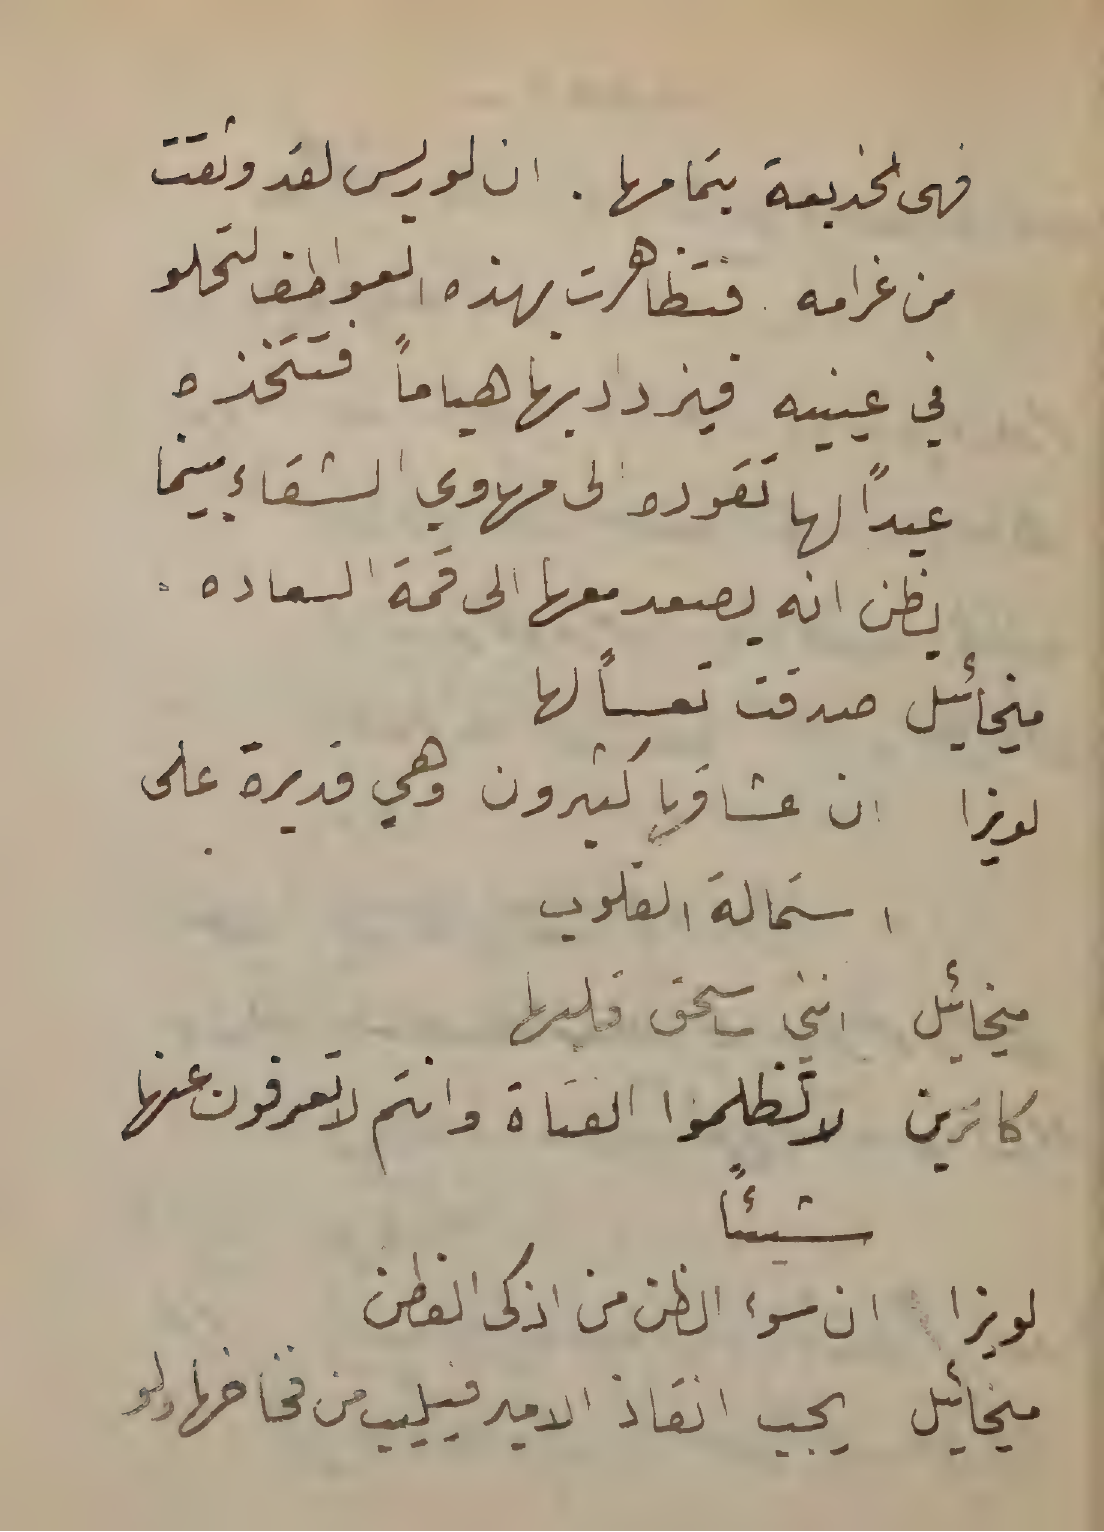 فهى الخديعة بتمامها . ان لوريس لقد وثقت
من غرامه . فتظاهرت بهذه العواطف لتحلو
في عينيه فيزداد بها هياماً فتتخذه
عبداً لها تقوده الى مهاوي الشقاء بينما
يظن انه يصعد معها الى قمة السعاده .
ميخائيل صدقت تعساً لها
لويزا ان عشاقها كثيرون وهي قديرة على
استمالة القلوب
ميخائيل انني ساسحق قلبها
كاترين لا تظلموا الفتاة وانتم لا تعرفون عنها
شيئاً
لويزا ان سوء الظن من اذكى الفطن
ميخائيل يجب انقاذ الامير فيليب من فخاخها ولو